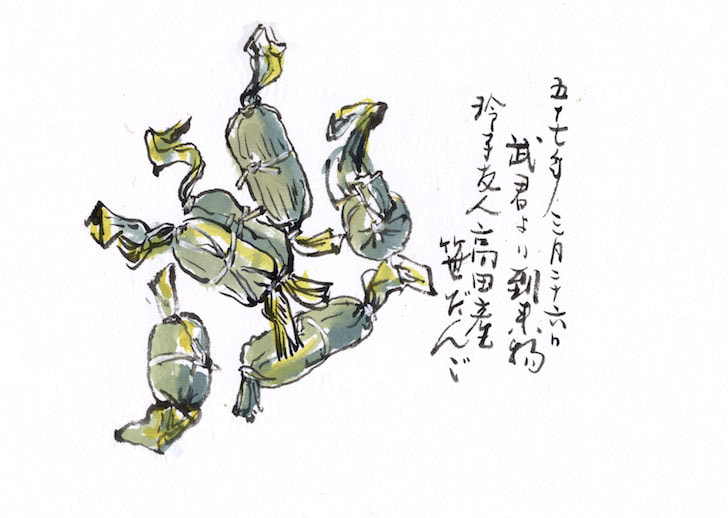 五十七年三月二十六日
武君より到来物
玲子友人高田産
笹だんご